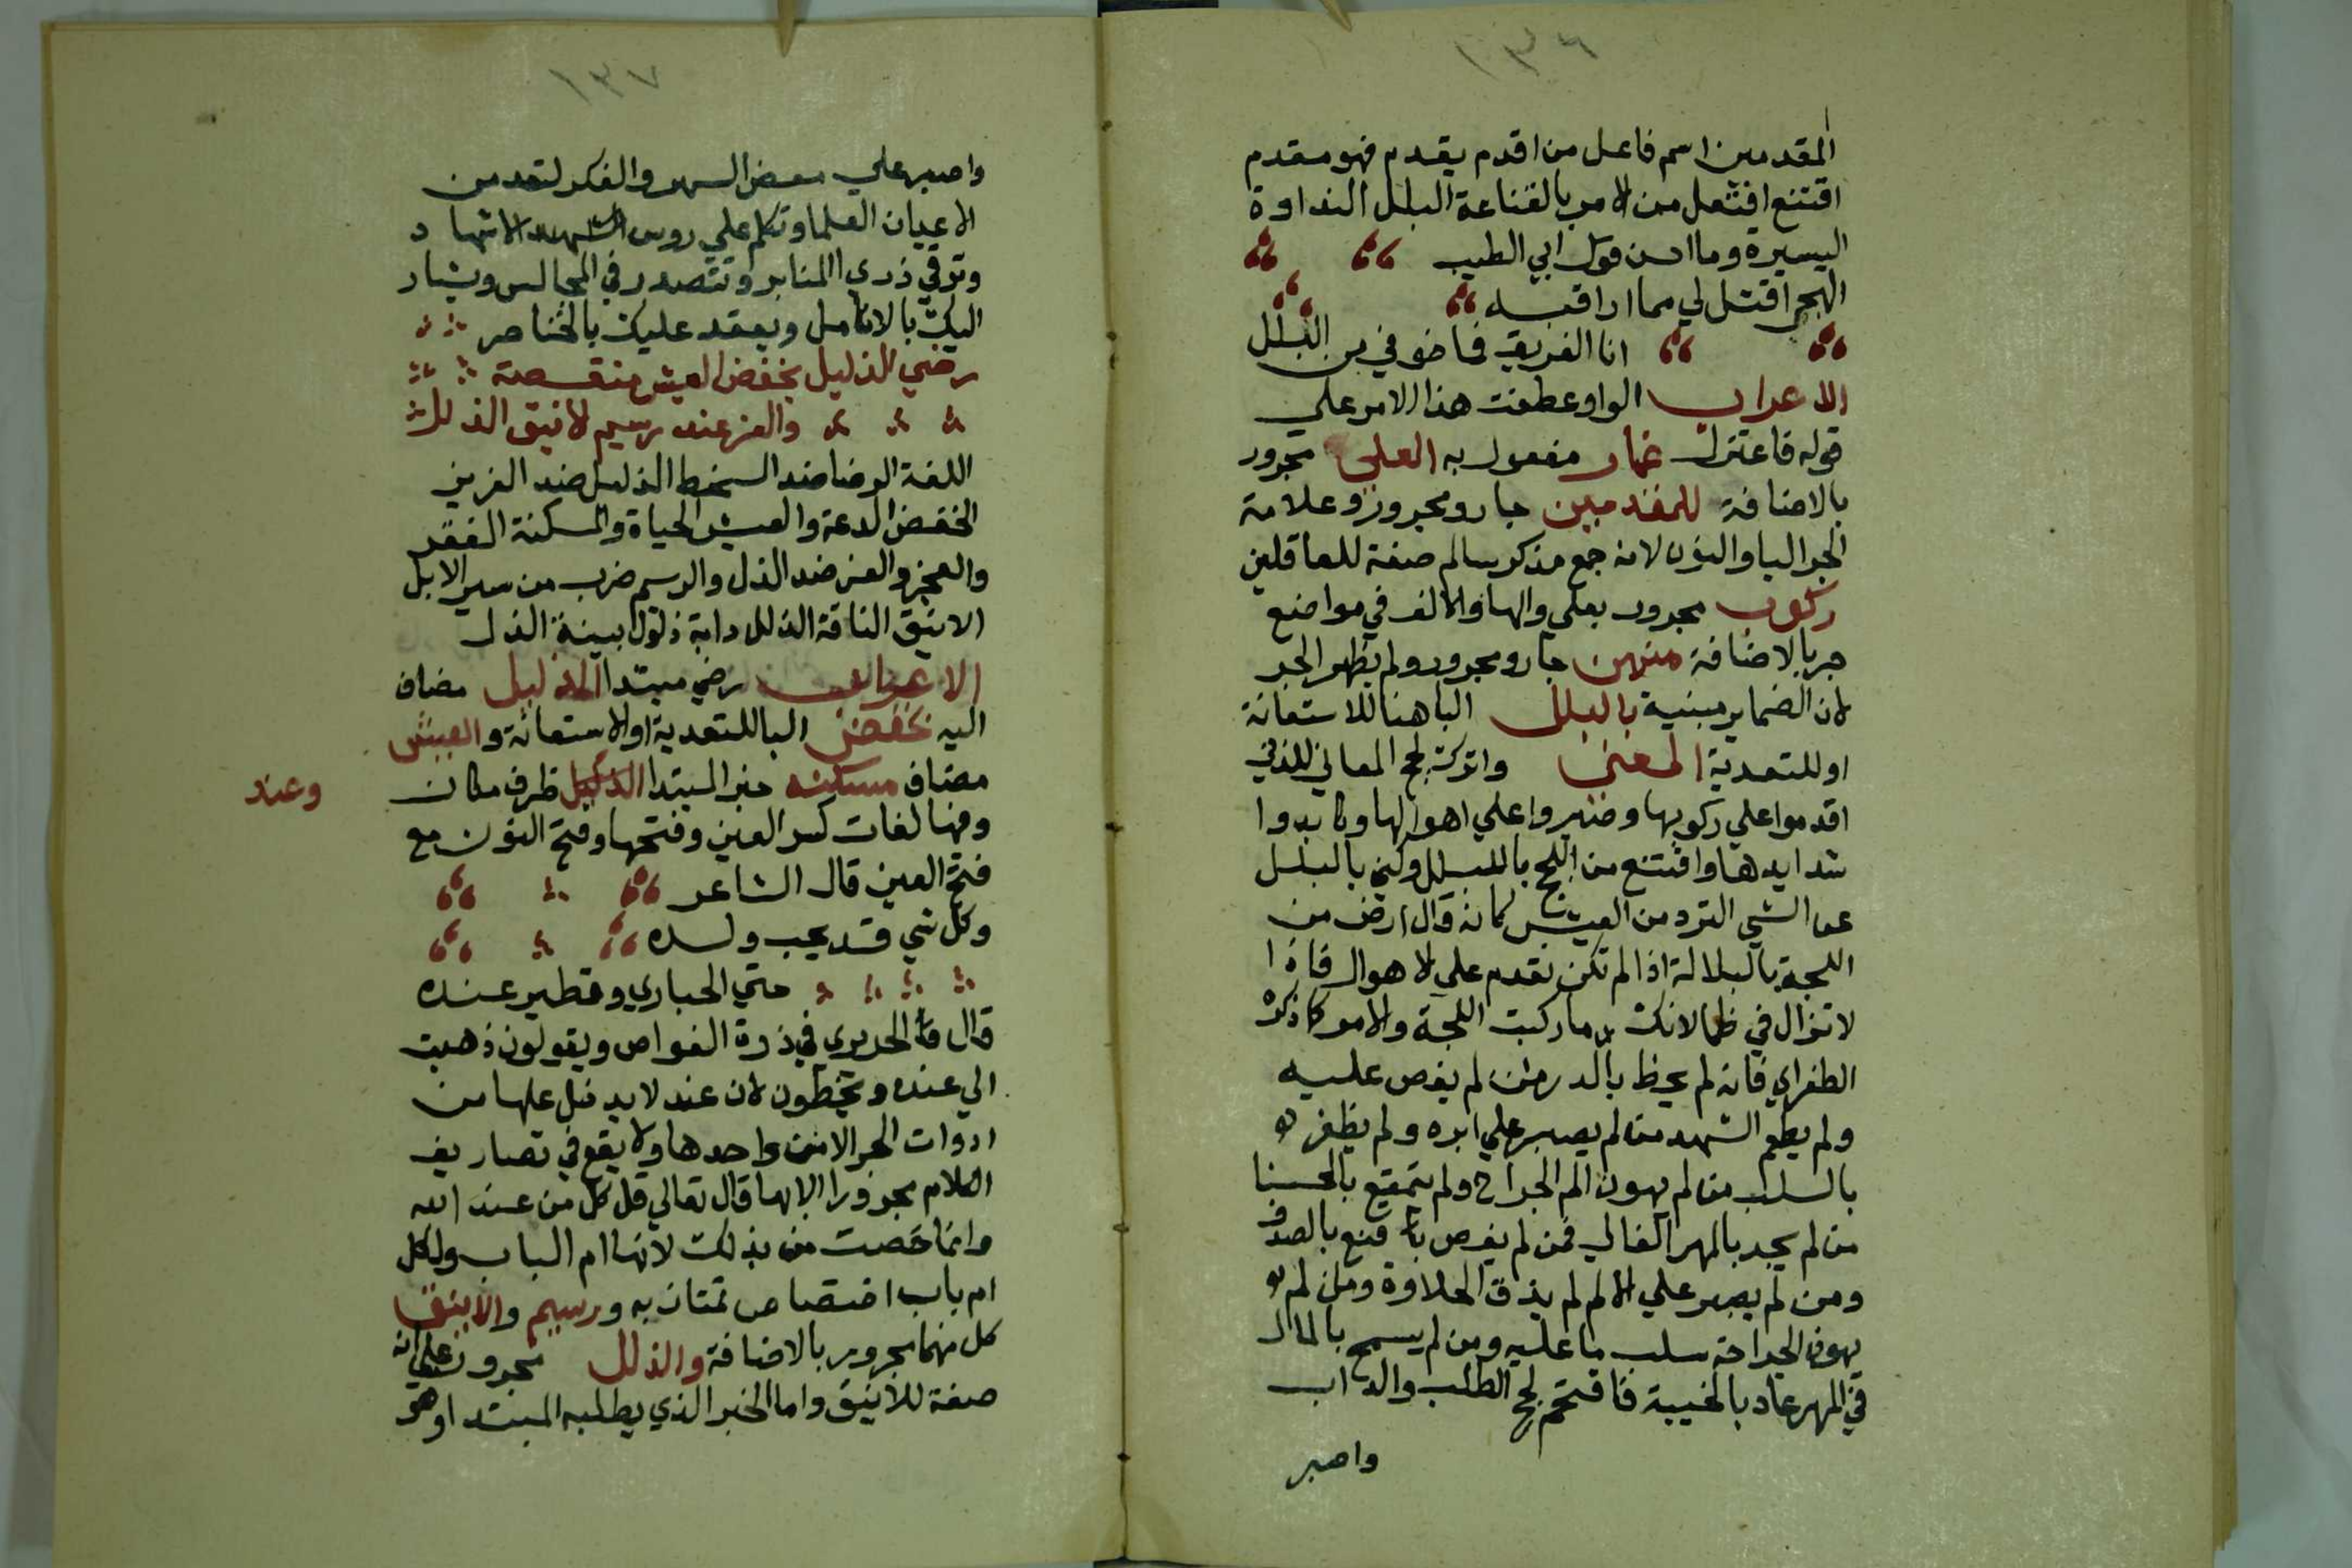 ١٣٦
المقدمين اسم فاعل من اقدم يقدم فهو مقدم
اقتنع افتعل من الامر بالقناعة البلل النداوة
اليسيرة وما احسن قول ابي الطيب
الهجر اقتل لي مما اراقبه
انا الغريق فما خوفي من البلل
الاعراب الواو عطفت هذا الامر علي
قوله فاعتزل غمار مفعول به العلي مجرور
بالاضافة للمقدمين جار ومجرور وعلامة
الجر اليا والنون لانه جمع مذكر سالم صفة للعاقلين
ركوب مجرور بعلي والها والالف في مواضع
جر بالاضافة منهن جار ومجرور ولم يظهر الجر
لان الضماير مبنية بالبلل الباهنا للاستعانة
او للتعدية المعني واترك لجج المعالي للذي
اقدموا علي ركوبها وصبروا علي اهوالها وكابدوا
شدايدها واقتنع من اللجج بالبلل وكني بالبلل
عن الشي النزر من العيش كانه قال ارض من
اللجة بالبلالة اذا لم تكن تقدم علي لاهوال فاذا
لا تزال في ظما لانك ما ركبت اللجة والامر كما ذكره
الطغراي فانه لم يحظ بالدر من لم يغص عليه
ولم يطعم الشهد من لم يصبر علي ابره ولم يظفر
بالسلب من لم يهون الم الجراح ولم يتمتع بالحسنا
من لم يجد بالمهر الغالي فمن لم يغص قنع بالصدف
ومن لم يصبر علي الالم لم يذق الحلاوة ومن لم
يهون الجراحة سلب ما عليه ومن لم يسمح بالمال
في المهر عاد بالخيبة فاقتحم لجج الطلب والداب
واصبر
١٣٧
واصبر علي مضض السهر والفكر لتعد من
الاعيان العلما وتكلم علي روس الاشهاد
وترقي ذري المنابر وتتصدر في المجالس ويشار
اليك بالانامل ويعقد عليك بالخناصر
رضي الذليل بخفض العيش منقصة
والعز عند رسيم لانيق الذلل
اللغة الرضا ضد السخط الذليل ضد العزيز
الخفض الدعة والعيش الحياة والمسكنة الفقر
والعجز والعز ضد الذل والرسيم ضرب من سير الابل
الانيق الناقة الذلل دابة ذلول بينة الذل
الاعراب رضي مبتدا الذليل مضاف
اليه بخفض البا للتعدية او الاستعانة والعيش
مضاف مسكنه خبر المبتدا الذليل ظرف مكان
وعند
وفيها لغات كسر العين وفتحها وفتح النون مع
فتح العين قال الشاعر
وكل شي قد يحب ولده
حتي الحباري وتطير عنده
قال الحريري في درة الغواص ويقولون ذهبت
الي عنده ويخطون لان عند لا يدخل عليها من
ادوات الجر الا من واحدها ولا يقع في تصاريف
الكلام مجرورا الا بها قال تعالي قل كل من عند الله
وانما خصت من بذلك لانها ام الباب ولكل
ام باب اختصاص تمتاز به ورسيم والاينق
كل منهما مجرور بالاضافة والذلل مجرور علي انه
صفة للانيق واما الخبر الذي يطلبه المبتدا وهو